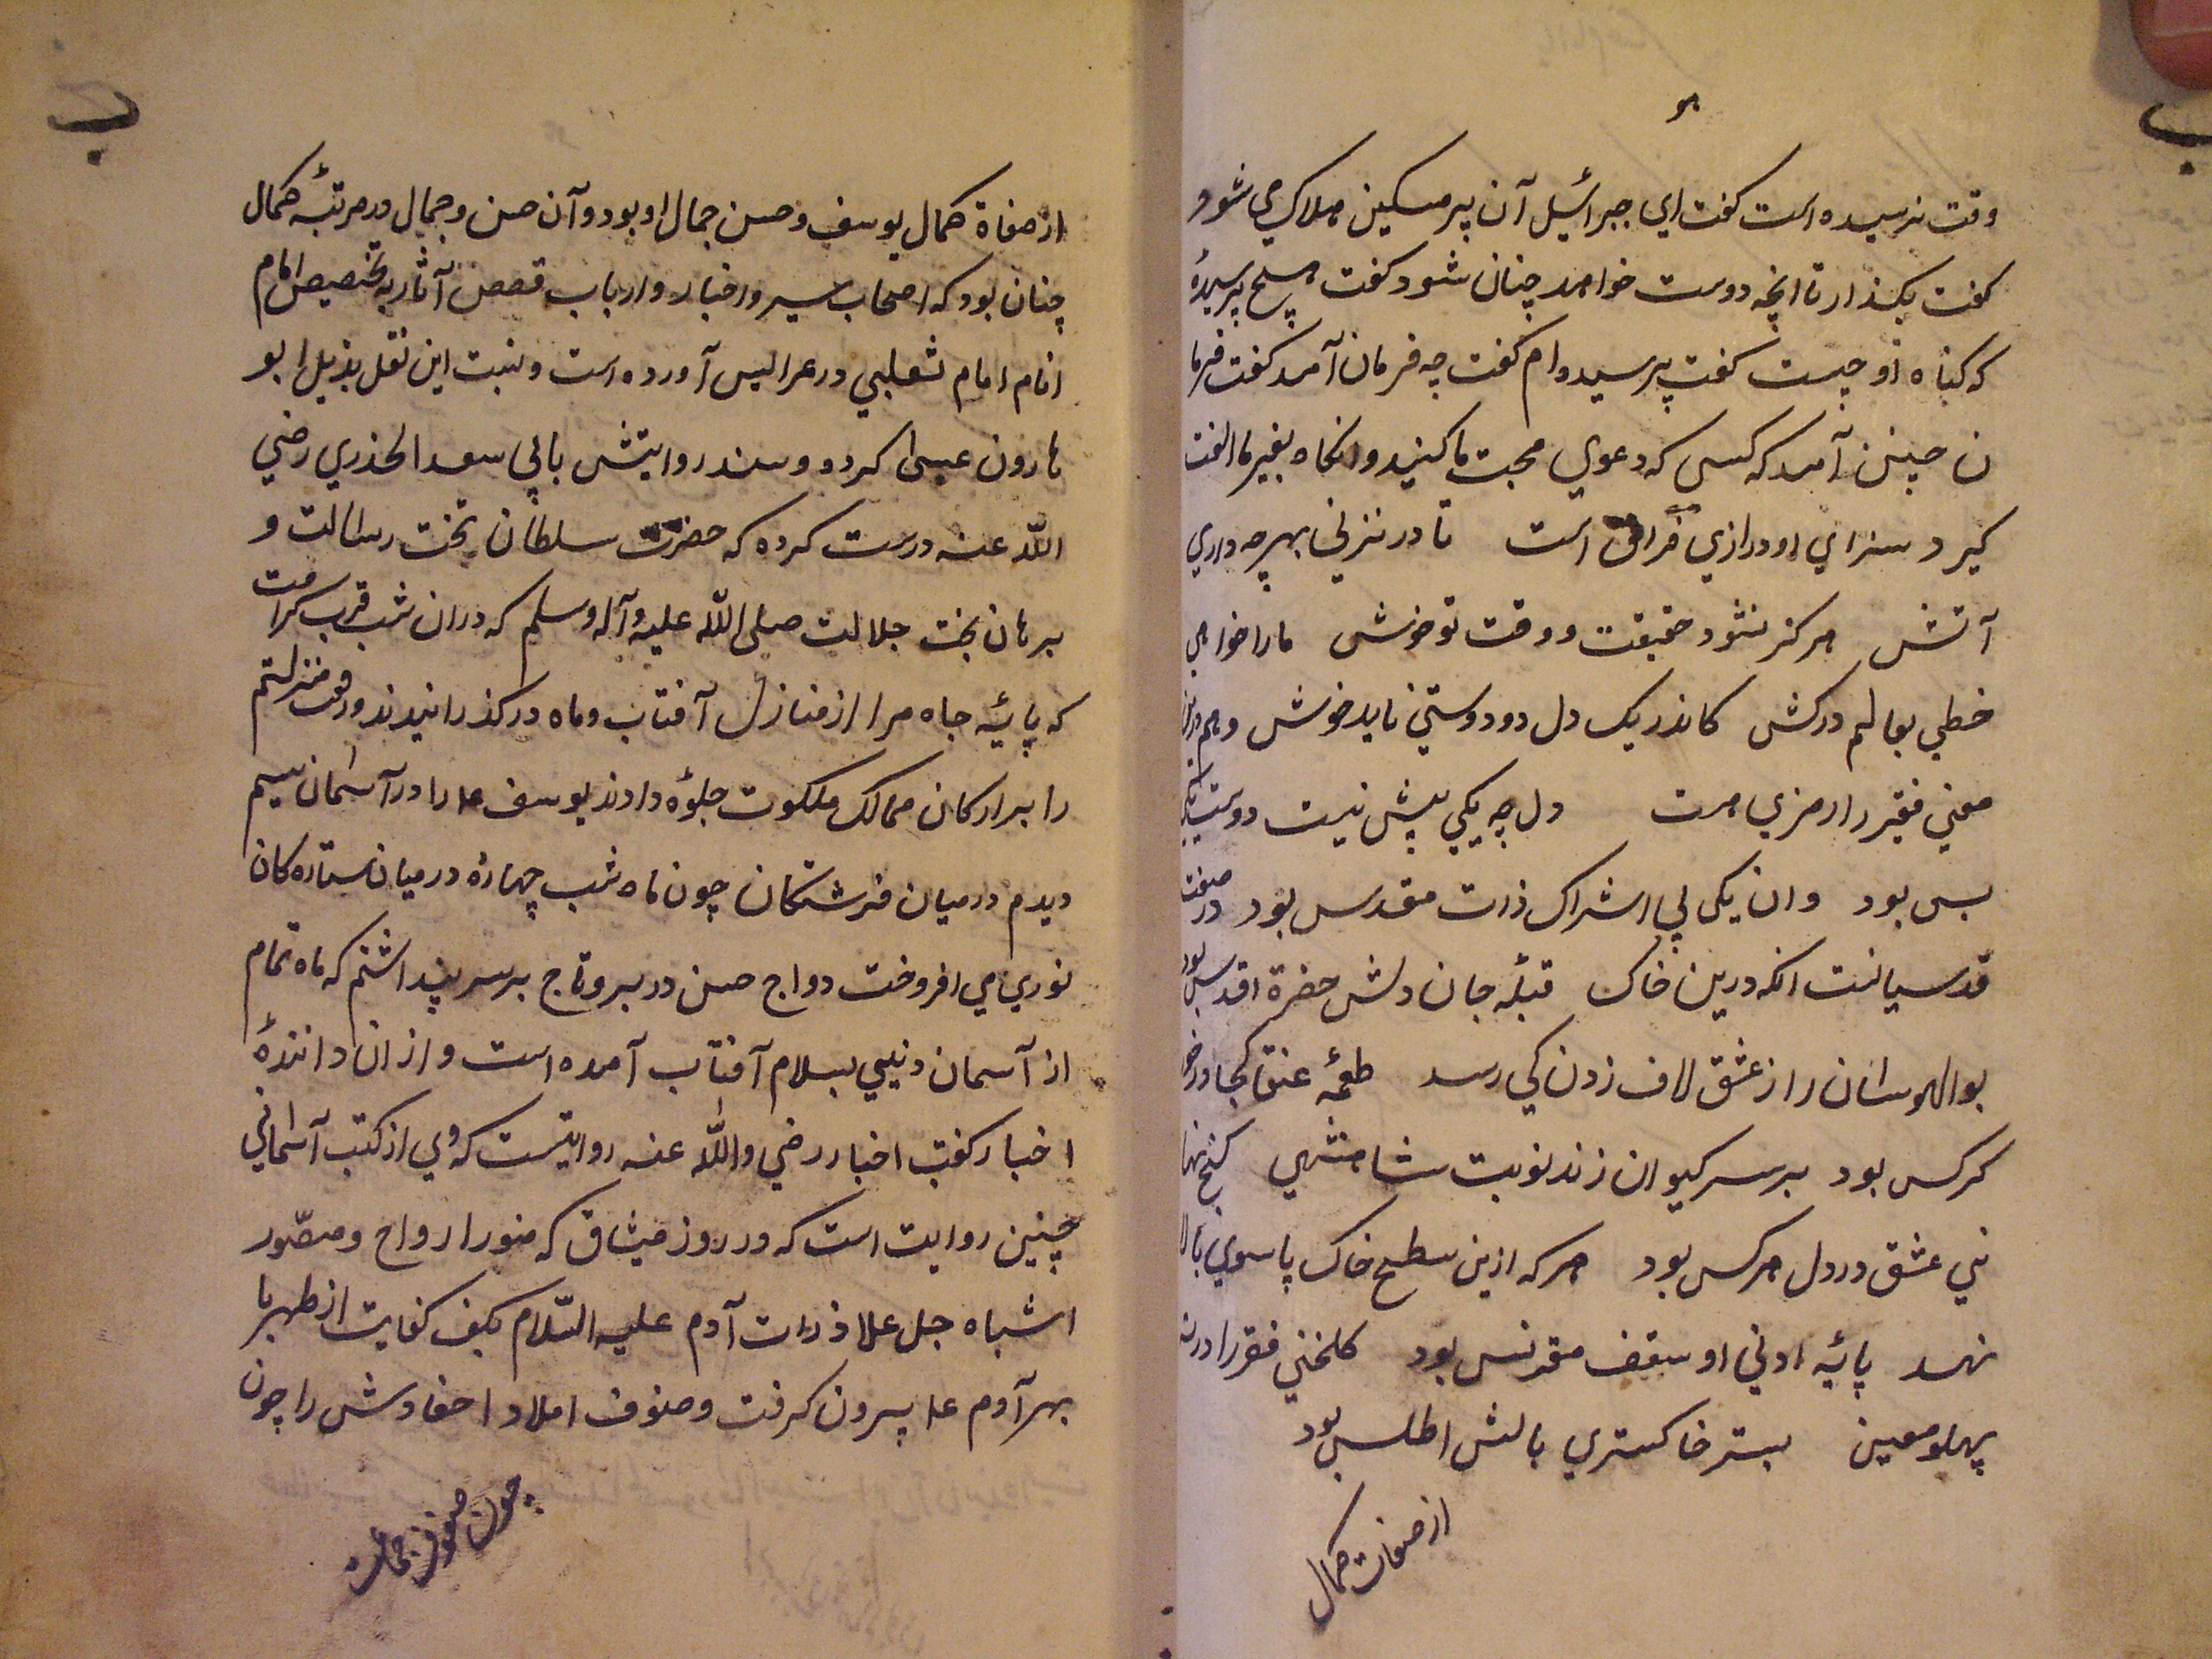 وقت نرسیده است کفت ای جبرائیل آن پیر مسکین هلاک می شود
کفت بکذار تا انچه دوست خواهد چنان شود کفت هیچ پرسیدۀ
که کناه او چیست کفت پرسیده ام کفت چه فرمان آمد کفت فرما
ن چنین آمد که کسی که دعوی محبت ما کنید وانکاه بغیر ما الفت
کیرد سزای او درازی فراق است تا در نزنی بهرچه داری
آتش هرکز نشود حقیقت و وقت تو خوش ما را خواهی
خطی بعالم درکش کاندر یک دل دو دوستی ناید خوش وهم درین
معنی فقیر را رمزی هست دل چه یکی بیش نیست دوست یکی
بس بود وان یکی بی اشراک ذات مقدس بود در صفت
قدسیانست انکه درین خاک قبلۀ جان دلش حضرة اقدس بود
بوالهوسان را ز عشق لاف زدن کی رسد طعمۀ عنقا کجا در خور
کرکس بود بر سر کیوان زند نوبت شاهنشهی کنج نها
نی عشق در دل هر کس بود هر که ازین سطح خاک پا سوی بالا
نهد پایۀ ادنی او سقف مقرنس بود کلخنی فقر را در ته
پهلو معین بستر خاکستری بالش اطلس بود
از صفات کمال
از صفاة کمال یوسف و حسن جمال او بود و آن حسن و جمال در مرتبۀ کمال
چنان بود که اصحاب سیر و اخبار و ارباب قصص آثار به تخصیص امام
انام امام ثعلبی در عرایس آورده است و نسبت این نقل بذیل ابو
هارون عبسی کرده و سند روایتش بابی سعد الخذری رضی
الله عنه درست کرده که حضرت سلطان تخت رسالت و
برهان بخت جلالت صلی الله علیه وآله وسلم که دران شب قرب کرامت
که پایۀ جاه مرا از منازل آفتاب و ماه در کذرانیدند ورفعت منزلتم
را بر ارکان ممالک ملکوت جلوۀ دادند یوسف عا را در آسمان سیم
دیدم درمیان فرشتکان چون ماه شب چهاردۀ درمیان ستاره کان
نوری می افروخت دواج حسن در بر و تاج بر سر پنداشتم که ماه تمام
از آسمان دنیی بسلام آفتاب آمده است و از ان دانندۀ
اخبار کفت اخبار رضی والله عنه روایتست که وی از کتب آسمانی
چنین روایت است که در روز میثاق که منور ارواح و مصّور
اشباه جل علا ذرات آدم علیه السّلام بکف کفایت از ظهر با
بهر آدم عا بیرون کرفت و صنوف املاد احفادش را چون
چون صفوف